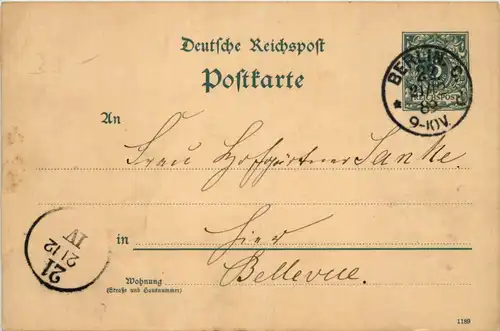 Deutsche Reichspost
Postkarte
BERLIN, C.
22
21/12
89
9-10V.
REICHSPOST
An
Frau Hofgärtner Janke.
in
hier
Bellevue.
Wohnung
(Straße und Hausnummer)
21
21/12
IV
1189